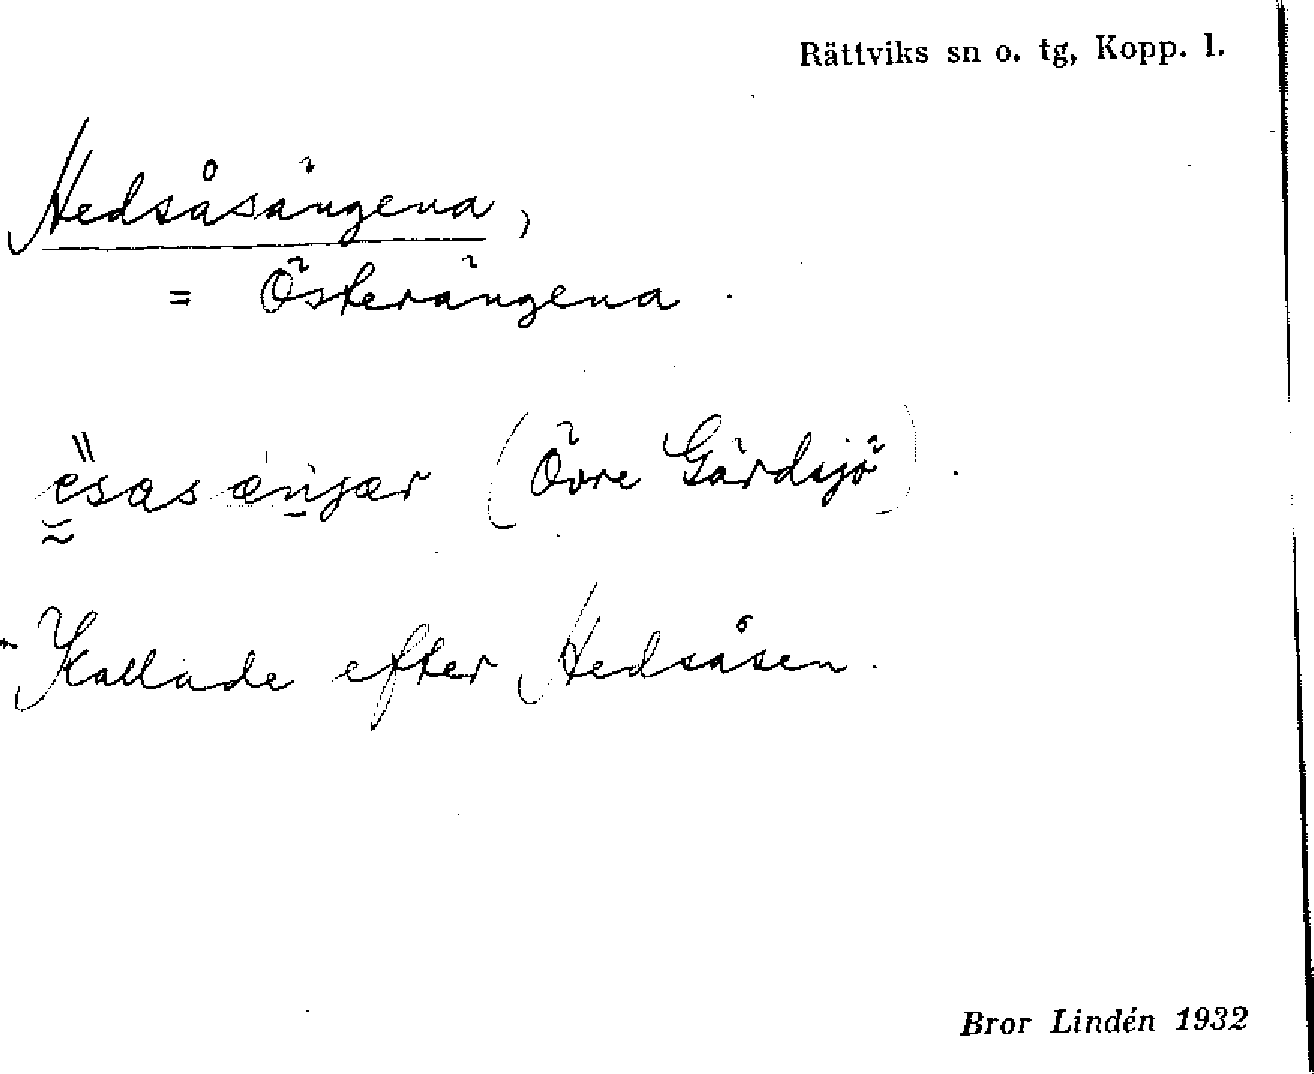 Rättviks sn o. tg, Kopp. l.
Hedsåsängena,
= Österängena.
(Övre Gärdsjö).
Kallade efter Hedsåsen.
Bror Lindén 1932